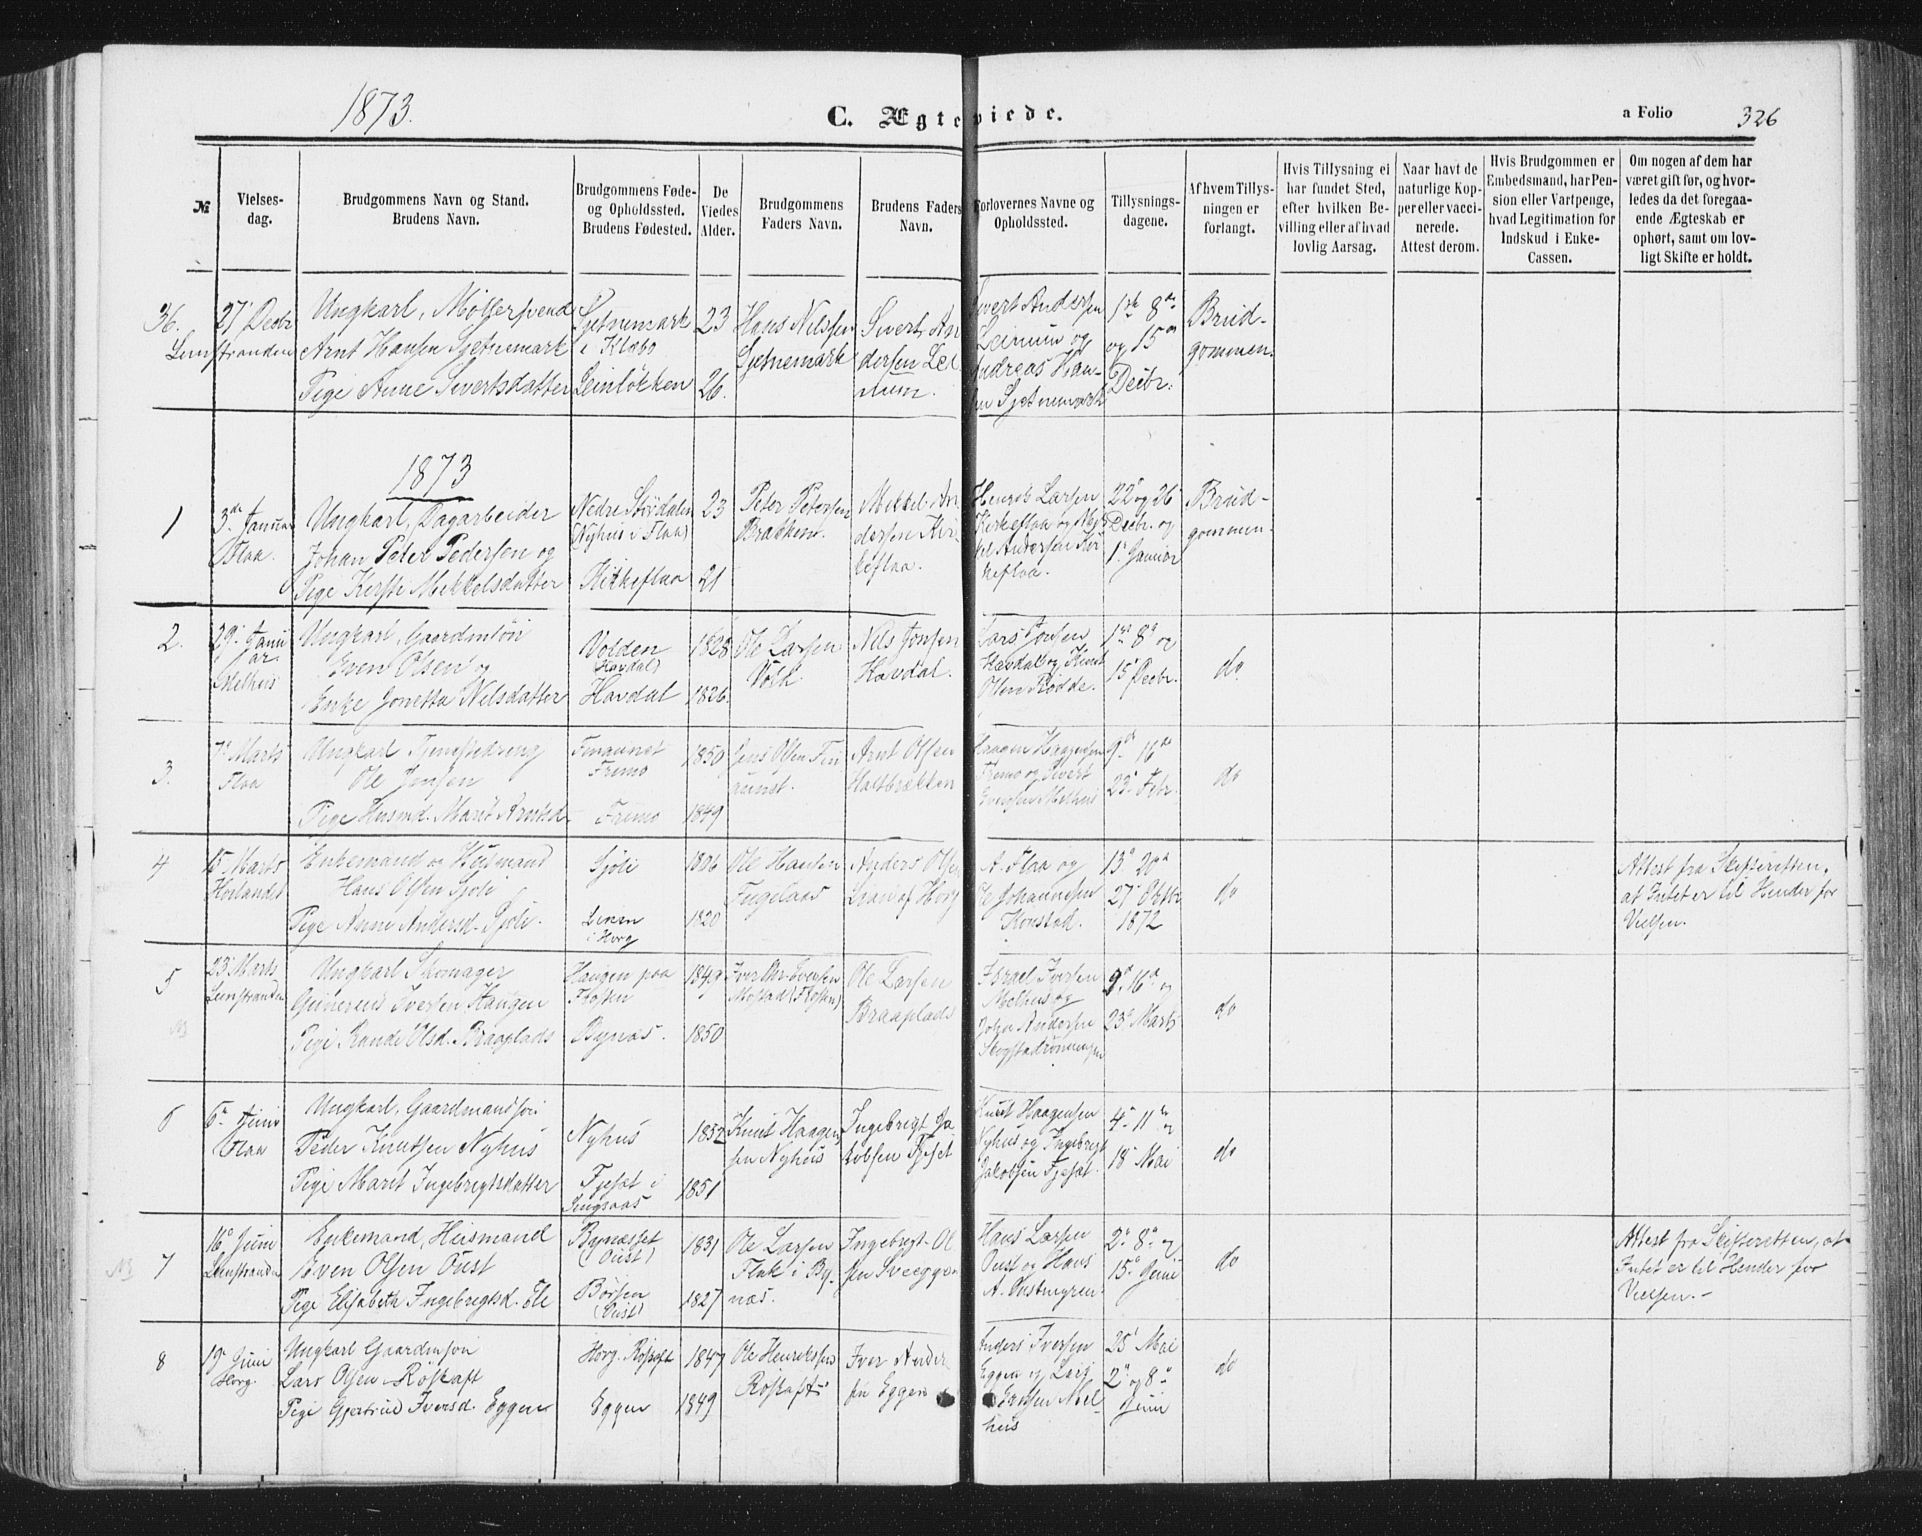 1873.
C. Ægteviede.
a Folio 326
№
Vielses-
dag.
Brudgommens Navn og Stand.
Brudens Navn.
Brudgommens Føde-
og Opholdssted.
Brudens Fødested.
De
Viedes
Alder.
Brudgommens
Faders Navn.
Brudens Faders
Navn.
Forlovernes Navne og
Opholdssted.
Tillysnings-
dagene.
Af hvem Tillys-
ningen er
forlangt.
Hvis Tillysning ei
har fundet Sted,
efter hvilken Be-
villing eller af hvad
lovlig Aarsag.
Naar havt de
naturlige Kop-
per eller vacci-
nerede.
Attest derom.
Hvis Brudgommen er
Embedsmand, har Pen-
sion eller Vartpenge,
hvad Legitimation for
Indskud i Enke-
Cassen.
Om nogen af dem har
været gift før, og hvor-
ledes da det foregaa-
ende Ægteskab er
ophørt, samt om lov-
ligt Skifte er holdt.
36.
27 Decbr
Leinstranden
Ungkarl, Møllersvend
Arnt Hansen Sjetnemark
Pige Anne Sivertsdatter
Sjetnemark
i Klæbo
Leinløkken
23
26.
Hans Nilssen
Sjetnemark
Sivert An
dersen Lei
num.
Sivert Andersen
Leinum og
Andreas Han-
sen Sjetnemark
1ste 8de
og 15de
Decbr.
Brud-
gommen.
1873
1
3de Januar
Flaa.
Ungkarl, Dagarbeider
Johan Peter Pedersen og
Pige Kirsti Mikkelsdatter
Nedre Stördalen
(Nyhus i Flaa)
Kirkeflaa
23
21
Peter Petersen
Brækken.
Mikkel An
dersen Kir
keflaa.
Henrik Larsen
Kirkeflaa og Mik
kel Andersen Kir
keflaa.
22 og 26
Decbr. og
1. Januar
Brud-
gommen.
2.
29. Janu
ar
Melhus
Ungkarl, Gaardmsön
Even Olsen og
Enke Jonetta Nilsdatter
Volden
(Havdal)
Havdal
1828
1826.
Ole Larsen
Vold.
Nils Jonsen
Havdal.
Lars Jonsen
Havdal og Knut
Olsen Rödde.
1ste 8de og
15de Decbr.
do
3.
7. Marts
Flaa
Ungkarl Tjenestedreng
Ole Jensen
Pige Husmd. Marit Arntsd.
Finaunet
Fremo
Fremo
1850
1849
Jens Olsen Fin
aunet.
Arnt Olsen
Haltbrækken
Haagen Haagensen
Fremo og Sivert
Evensen Melhus
9de 16de
23. Febr.
do
4
15 Marts
Hørlandet
Enkemand og Husmand
Hans Olsen Sjöli
Pige Anne Andersd. Sjöli.
Sjöli
Lenen
i Horg
1806
1820
Ole Hansen
Fugelaas
Anders Olsen
Lian af Horg
A. Flaa og
Ole Johannesen
Konstad.
13. 20de
27. Oktbr
1872
do
Attest fra Skifteretten,
at Intet er til Hinder for
Vielsen.
5
23. Marts
Leinstranden
Ungkarl Skomager
Gunerius Iversen Haugen
Pige Randi Olsd. Braaplads
Haugen paa
Flosten
Bynæs.
1849
1850
Iver Chr. Iversen
Mostad (Flosten)
Ole Larsen
Braaplads
Israel Iversen
Melhus og
John Andersen
Skogstadrönningen
9de 16de og
23de Marts
do
6
6te Juni
Flaa
Ungkarl, Gaardmandsön
Peder Knutsen Nyhus
Pige Marit Ingebrigtsdatter
Nyhus
Fjeset i
Singsaas
1852
1851
Knut Haagen
sen Nyhus
Ingebrigt Ja
kobsen Fjeset
Knut Haagensen
Nyhus og Ingebrigt
Jakobsen Fjeset.
4. 11te og
18 Mai
do
7
16de Juni
Leinstranden
Enkemand, Husmand
Even Olsen Oust
Pige Elisabeth Ingebrigtsd. Ele
Bynæsset
(Oust)
Börsen
(Oust)
1831
1827
Ole Larsen
Flak i By-
næs.
Ingebrigt Ol
sen Sveeggen
Hans Larsen
Oust og Hans
A. Oustmyren.
2. 8. og
15. Juni
do
Attest fra Skifteretten, at
Intet er til Hinder for
Vielsen.-
8
19. Juni
Horg.
Ungkarl Gaardmsön
Lars Olsen Röskaft
Pige Gjertrud Iversd. Eggen
Horg. Röskaft
Eggen
1847
1849
Ole Henriksen
Röskaft
Iver Ander
sen Eggen
Anders Iversen
Eggen og Lars
Larssen Mel-
hus
25. Mai
2. og 8.
Juni
do